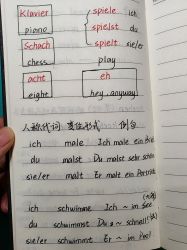 Klavier
piano
spiele ich
spielst du
Schach
spielt sie/er
chess
play
acht
eight
eh
hey, anyway
人称代词 变位形式 例句
ich male Ich male ein Bild
du malst Du malst sehr schön
sie/er malt Er malt ein Porträt
ich schwimme Ich ~ im See
du schwimmst Du ~ schnell
sie/er schwimmt Er ~ im Pool